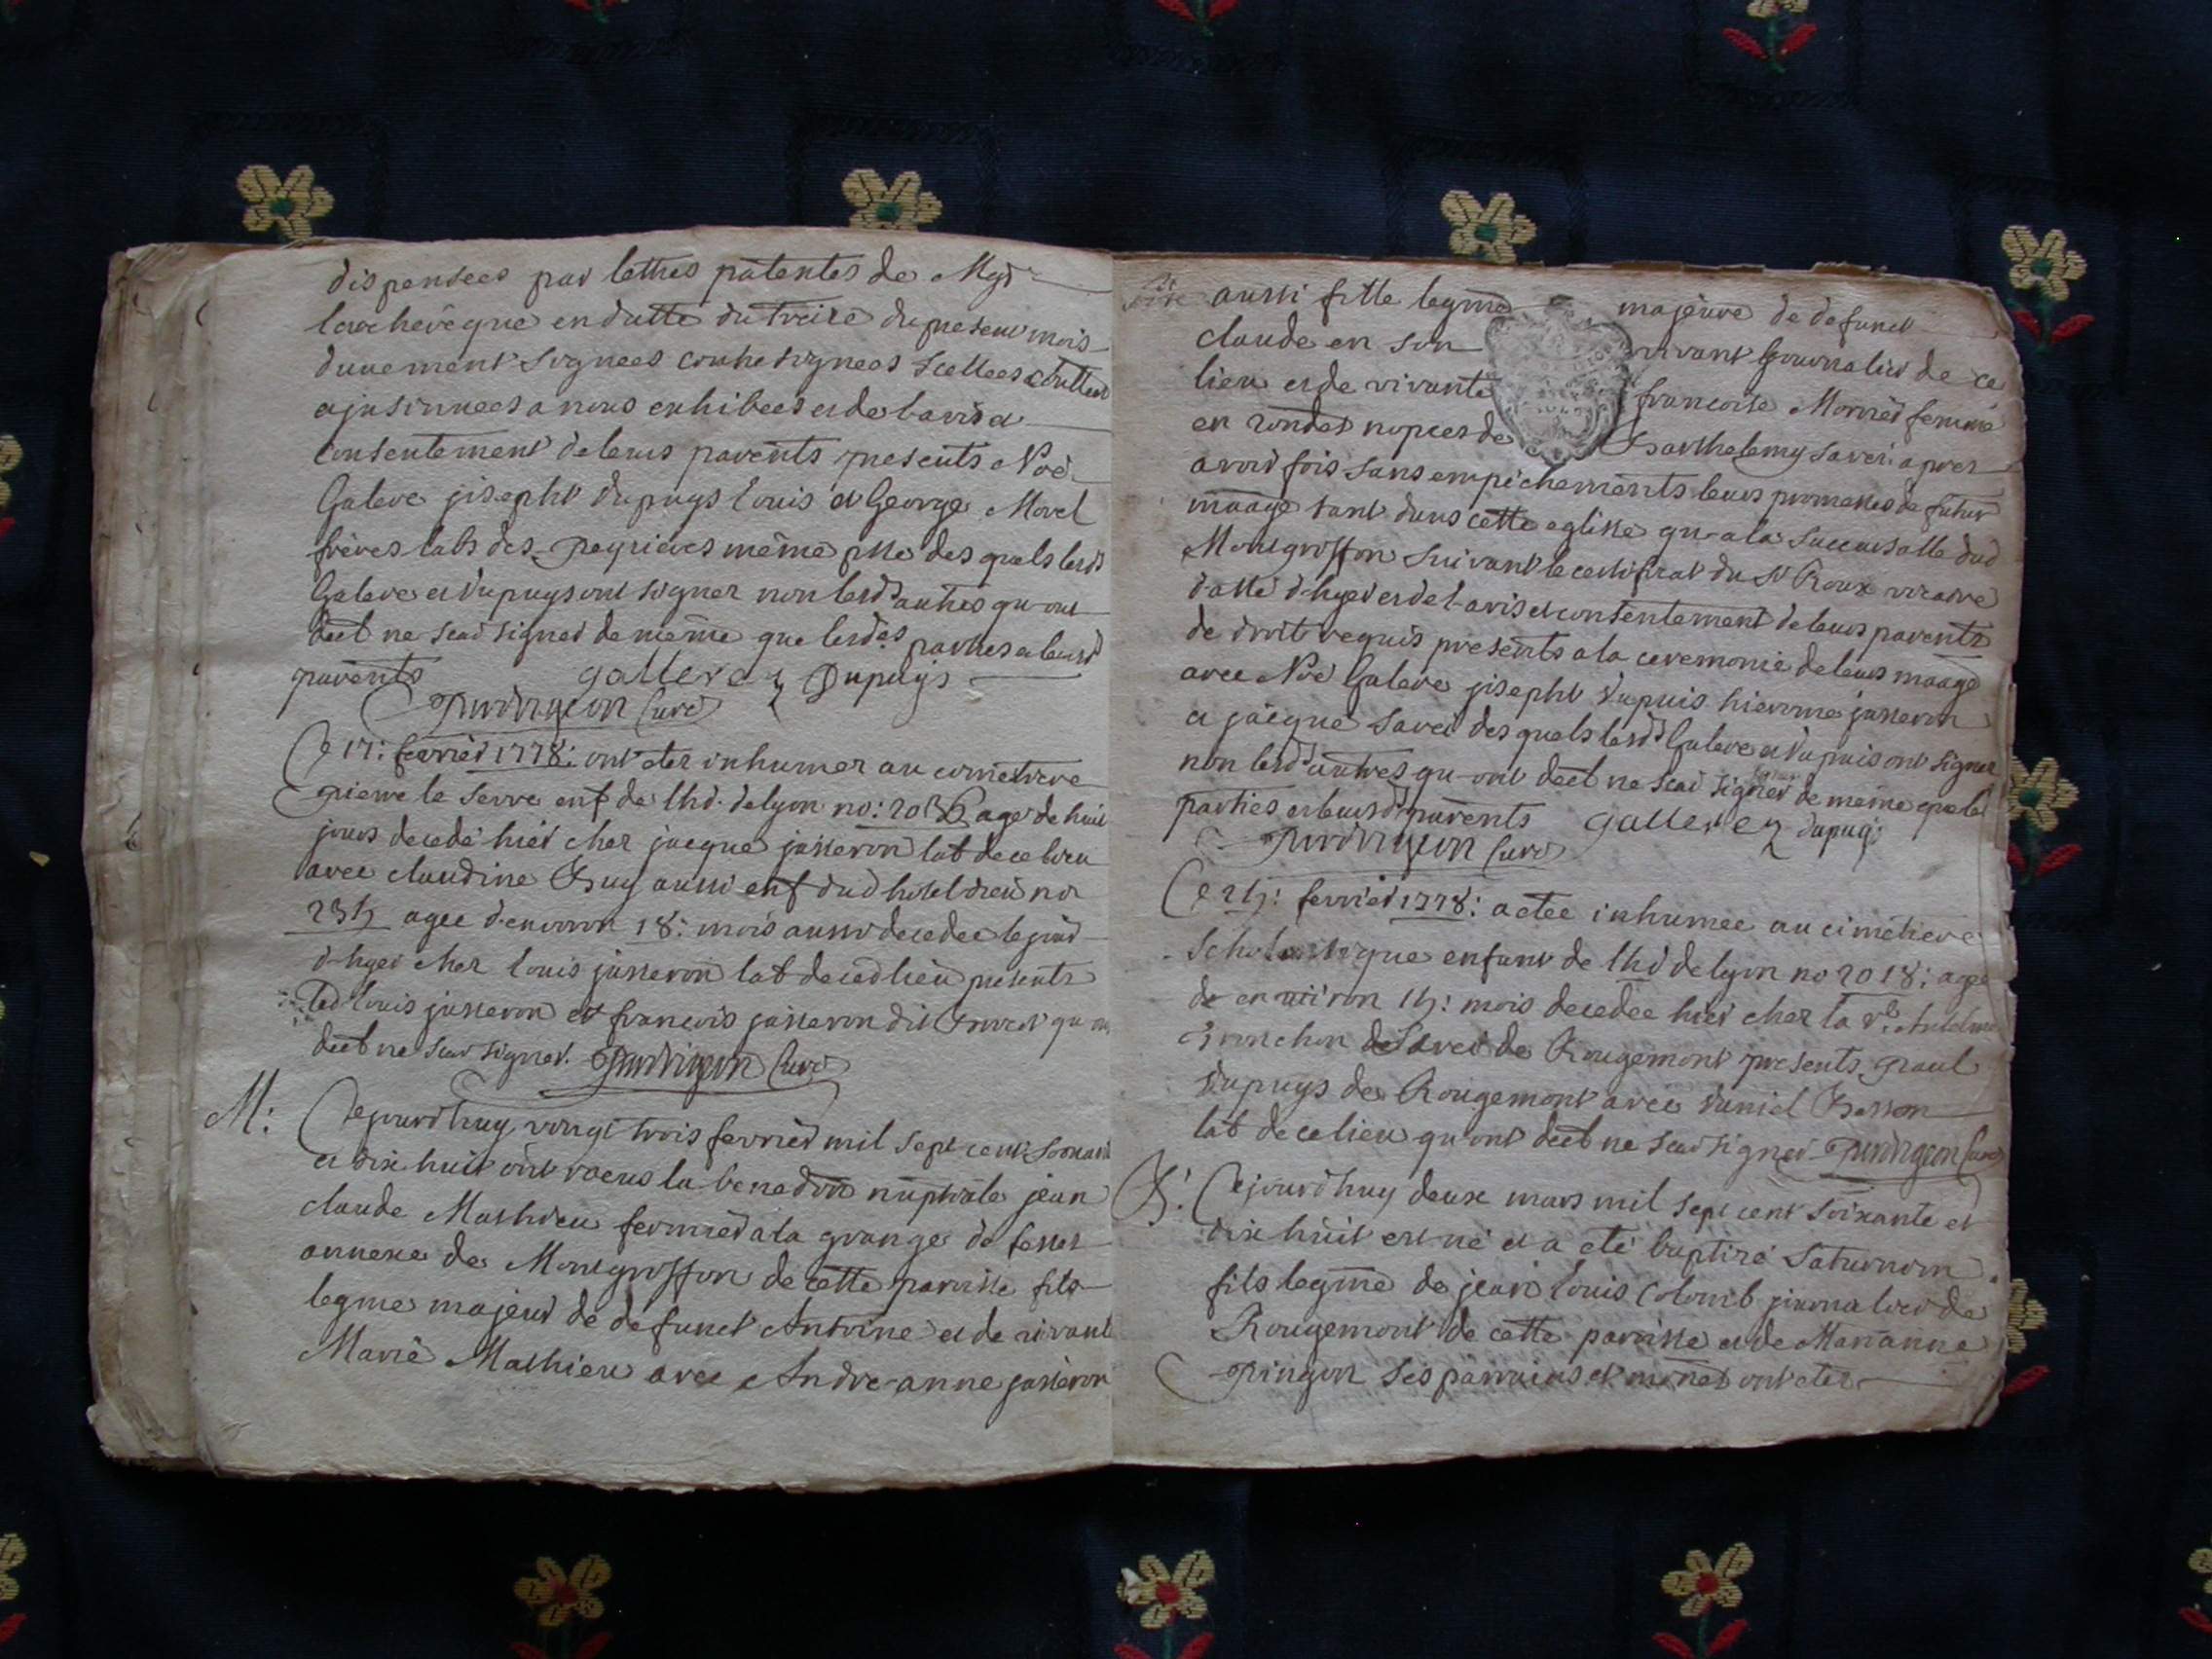 dispensees par lettres patentes de Mgr
larcheveque en datte du treize du present mois
duuement signees contresignees scellees
a nous exhibees et de lavis et
consentement de leurs parents presents Noé
Galere joseph dupuys louis et George Morel
frères labs des même psse des quels lesds
Galere et dupuys ont signer non lesds autres qu-ont
declt ne scav signer de même que lesdes parties et leursd
parents gallere Dupuys
curé
Ce 17: fevrier 1778: ont eter inhumer au cimetiere
pierre le serre enf de lhd. de lyon no: age de huit
jours decedé hier chez jacque jasseron lab de ce lieu
avec claudine Buy aussi enf dud hotel dieu no
agee d-environ 18: mois aussi decedee le jour
d-hyer chez louis jasseron lab de ced lieu presents
led louis jasseron et francois jasseron dit qu
declt ne scav signer. curé
M: Cejourdhuy vingt trois fevrier mil sept cent soixante
et dix huit ont recus la benedon nuptiale jean
claude Mathieu fermier a la grange de
annexe de Montgroffon de cette paroisse fils
legme majeur de defunct Antoine et de vivante
Marie Mathieu avec Andre-anne jasseron
aussi fille legme majeure de defunct
claude en son vivant journalier de ce
lieu et de vivante francoise femme
en nopces de Barthelemy savei apres
avoir fois sans empêchements leurs promesses de futur
maage tant dans cette eglisse qu-a la succursalle dud
Montgroffon suivant le certificat du Sr Roux vicaire
datté d-hyer et de l-avis et consentement de leurs parents
de droit requis presents a la ceremonie de leurs maage
avec Noé Galere joseph dupuis hierome jasseron
et jacque savei des quels lesds Galere et dupuis ont signer
non lesds autres qu-ont declt ne scav signer de même que les
parties et leursds parents gallere dupuys
curé
Ce 24: fevrier 1778: a etee inhumee au cimetiere
Scholastique enfant de lhd de lyon no 2018: agee
de environ 14: mois decedee hier chez la ve Antelme
de savei de Rougemont presents paul
dupuys de Rougemont avec daniel Besson
lab de ce lieu qu-ont declt ne scav signer curé
B: Cejourdhuy deux mars mil sept cent soixante et
dix huit est né et a eté baptizé saturnin
fils legme de jean louis Colomb journalier de
Rougemont de cette paroisse et de Marianne
pingon ses parrains et ont eter